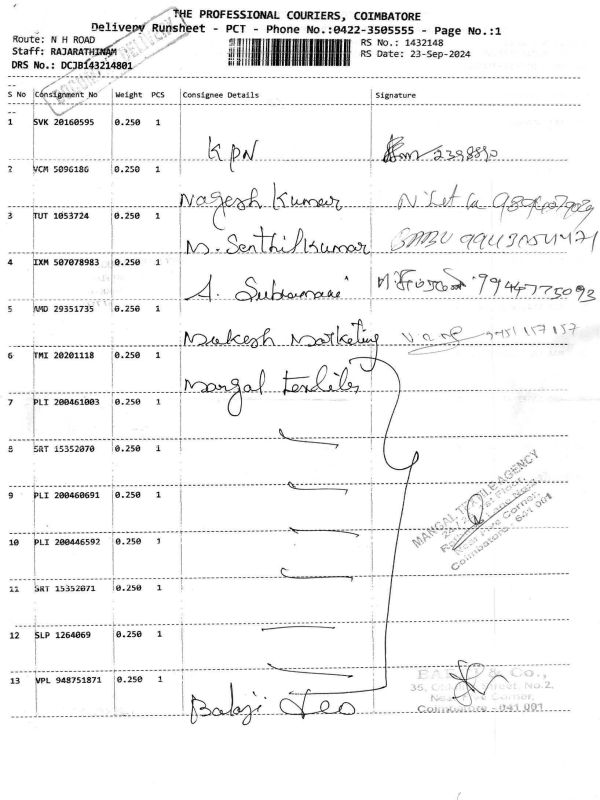 THE PROFESSIONAL COURIERS, COIMBATORE
Delivery Runsheet - PCT - Phone No.:0422-3505555 - Page No.:1
Route: N H ROAD
RS No.: 1432148
Staff: RAJARATHINAM
RS Date: 23-Sep-2024
DRS No.: DCJB143214801
S No Consignment No Weight PCS Consignee Details Signature
1 SVK 20160595 0.250 1
KPN
2 VCM 5096186 0.250 1
Nagesh Kumar
3 TUT 1053724 0.250 1
M. Senthil Kumar
4 IXM 507078983 0.250 1
A. Subramani 9944775093
5 AMD 29351735 0.250 1
Mukesh Marketing
6 TMI 20201118 0.250 1
Mangal Textiles
7 PLI 200461003 0.250 1
8 SRT 15352070 0.250 1
9 PLI 200460691 0.250 1
MANGAL TEXTILE AGENCY
Coimbatore - 641 001
10 PLI 200446592 0.250 1
11 SRT 15352071 0.250 1
12 SLP 1264069 0.250 1
13 VPL 948751871 0.250 1
& Co.,
Street, No.2,
Corner,
Coimbatore - 641 001
Balaji